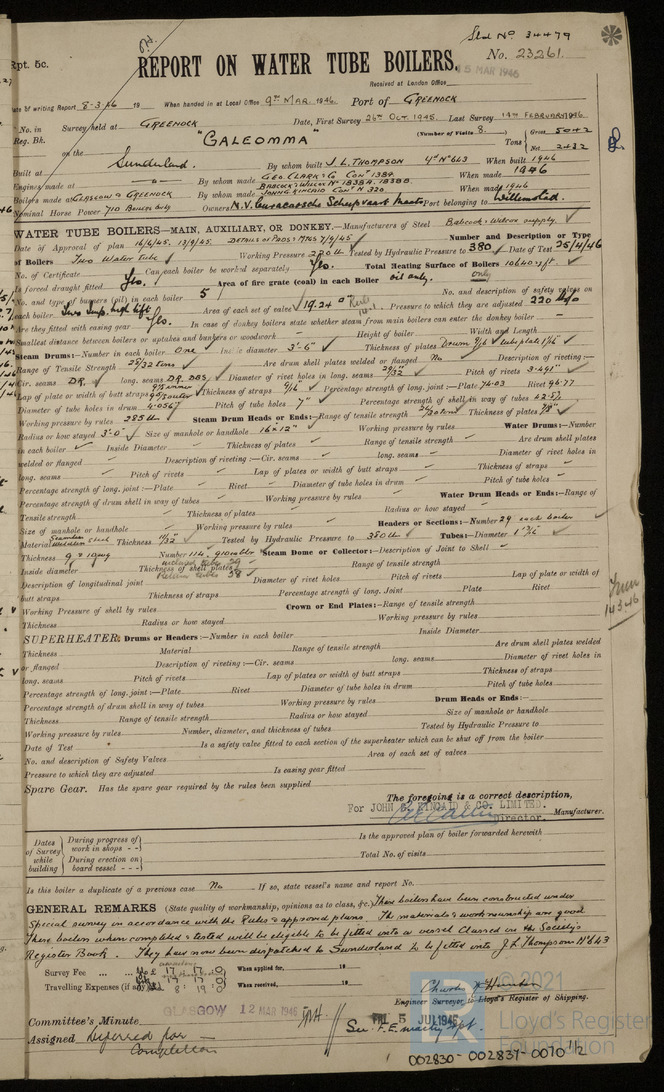 Sld No 34479
Rpt. 5c.
No. 23261
REPORT ON WATER TUBE BOILERS.
15 MAR 1946
Received at London Office
Date of writing Report 8-3-46 19 When handed in at Local Office 9th MAR. 1946. Port of GREENOCK
No. in Survey held at GREENOCK Date, First Survey 26th OCT. 1945. Last Survey 14th FEBRUARY 1946.
Reg. Bk. (Number of Visits 8.)
on the "GALEOMMA" Tons Gross 5042 Net 2432
Built at Sunderland. By whom built J. L. THOMPSON Yd No 663 When built 1946
Engines made at By whom made GEO. CLARK & Co Con 1384 When made 1946
Boilers made at GLASGOW & GREENOCK By whom made BABCOCK & WILCOX No 1838A, 1838B. JOHN G. KINCAID Con N 320 When made 1946
Nominal Horse Power 710 Boilers only Owners N.V. Curacaosche Scheepvaart Maats Port belonging to Willemstad.
WATER TUBE BOILERS—MAIN, AUXILIARY, OR DONKEY.—Manufacturers of Steel Babcock & Wilcox supply.
Date of Approval of plan 16/6/45. 13/9/45. Number and Description or Type
of Boilers Two Water Tube Working Pressure 220 lb Tested by Hydraulic Pressure to 380 Date of Test
No. of Certificate Can each boiler be worked separately Yes. Total Heating Surface of Boilers 10640 sq ft
Is forced draught fitted Yes. Area of fire grate (coal) in each Boiler oil only.
No. and type of burners (oil) in each boiler 5 No. and description of safety valves on
each boiler. Two Imp. high lift Area of each set of valves 19.24 Pressure to which they are adjusted 220
Are they fitted with easing gear Yes. In case of donkey boilers state whether steam from main boilers can enter the donkey boiler
Smallest distance between boilers or uptakes and bunkers or woodwork Height of boiler Width and Length
Steam Drums:—Number in each boiler One Inside diameter 3'-6" Thickness of plates Drum
Range of Tensile Strength 28/32 tons Are drum shell plates welded or flanged No Description of riveting:—
Cir. seams DR. long. seams DR. DBS Diameter of rivet holes in long. seams 29/32" Pitch of rivets 3.491"
Lap of plate or width of butt straps Thickness of straps Percentage strength of long. joint:—Plate 74.03 Rivet 94.77
Diameter of tube holes in drum 4.056" Pitch of tube holes 7" Percentage strength of shell in way of tubes 42.5%
Working pressure by rules 285 lb Steam Drum Heads or Ends:—Range of tensile strength Thickness of plates 7/8"
Radius or how stayed 3'-0" Size of manhole or handhole 16"x12" Working pressure by rules Water Drums:—Number
in each boiler Inside Diameter Thickness of plates Range of tensile strength Are drum shell plates
welded or flanged Description of riveting:—Cir. seams long. seams Diameter of rivet holes in
long. seams Pitch of rivets Lap of plates or width of butt straps Thickness of straps
Percentage strength of long. joint:—Plate Rivet Diameter of tube holes in drum Pitch of tube holes
Percentage strength of drum shell in way of tubes Working pressure by rules Water Drum Heads or Ends:—Range of
Tensile strength Thickness of plates Radius or how stayed
Size of manhole or handhole Working pressure by rules Headers or Sections:—Number 29 each boiler
Material Thickness Tested by Hydraulic Pressure to 380 lb Tubes:—Diameter
Thickness 9 & 10 swg Number 114. Steam Dome or Collector:—Description of Joint to Shell
Inside diameter Thickness of shell plates Range of tensile strength
Description of longitudinal joint Diameter of rivet holes Pitch of rivets Lap of plate or width of
butt straps Thickness of straps Percentage strength of long. Joint Plate Rivet
Working Pressure of shell by rules Crown or End Plates:—Range of tensile strength
Thickness Radius or how stayed Working pressure by rules
SUPERHEATER. Drums or Headers:—Number in each boiler Inside Diameter
Thickness Material Range of tensile strength Are drum shell plates welded
or flanged Description of riveting:—Cir. seams long. seams Diameter of rivet holes in
long. seams Pitch of rivets Lap of plates or width of butt straps Thickness of straps
Percentage strength of long. joint:—Plate Rivet Diameter of tube holes in drum Pitch of tube holes
Percentage strength of drum shell in way of tubes Working pressure by rules Drum Heads or Ends:—
Thickness Range of tensile strength Radius or how stayed Size of manhole or handhole
Working pressure by rules Number, diameter, and thickness of tubes Tested by Hydraulic Pressure to
Date of Test Is a safety valve fitted to each section of the superheater which can be shut off from the boiler
No. and description of Safety Valves Area of each set of valves
Pressure to which they are adjusted Is easing gear fitted
Spare Gear. Has the spare gear required by the rules been supplied
The foregoing is a correct description,
For JOHN G. KINCAID & CO. LIMITED.
Director. Manufacturer.
Dates of Survey while building
During progress of work in shops - - Is the approved plan of boiler forwarded herewith
During erection on board vessel - - - Total No. of visits
Is this boiler a duplicate of a previous case No If so, state vessel's name and report No.
GENERAL REMARKS (State quality of workmanship, opinions as to class, &c.) These boilers have been constructed under
Special survey in accordance with the Rules & approved plans. The materials & workmanship are good
These boilers when completed & tested will be eligible to be fitted into a vessel Classed in the Society's
Register Book. They have now been dispatched to Sunderland to be fitted into J. L. Thompson No 663
Survey Fee ... ... 17 : 17 : 0 When applied for, 19
Travelling Expenses (if any) 8 : 19 : 0 When received, 19
Engineer Surveyor to Lloyd's Register of Shipping.
GLASGOW 12 MAR 1946
FRI. 5 JUL 1946
Committee's Minute
See F.E. machy rpt.
Assigned Deferred for
Completion
© 2021
Lloyd's Register
Foundation
002830-002837-0070 1/2